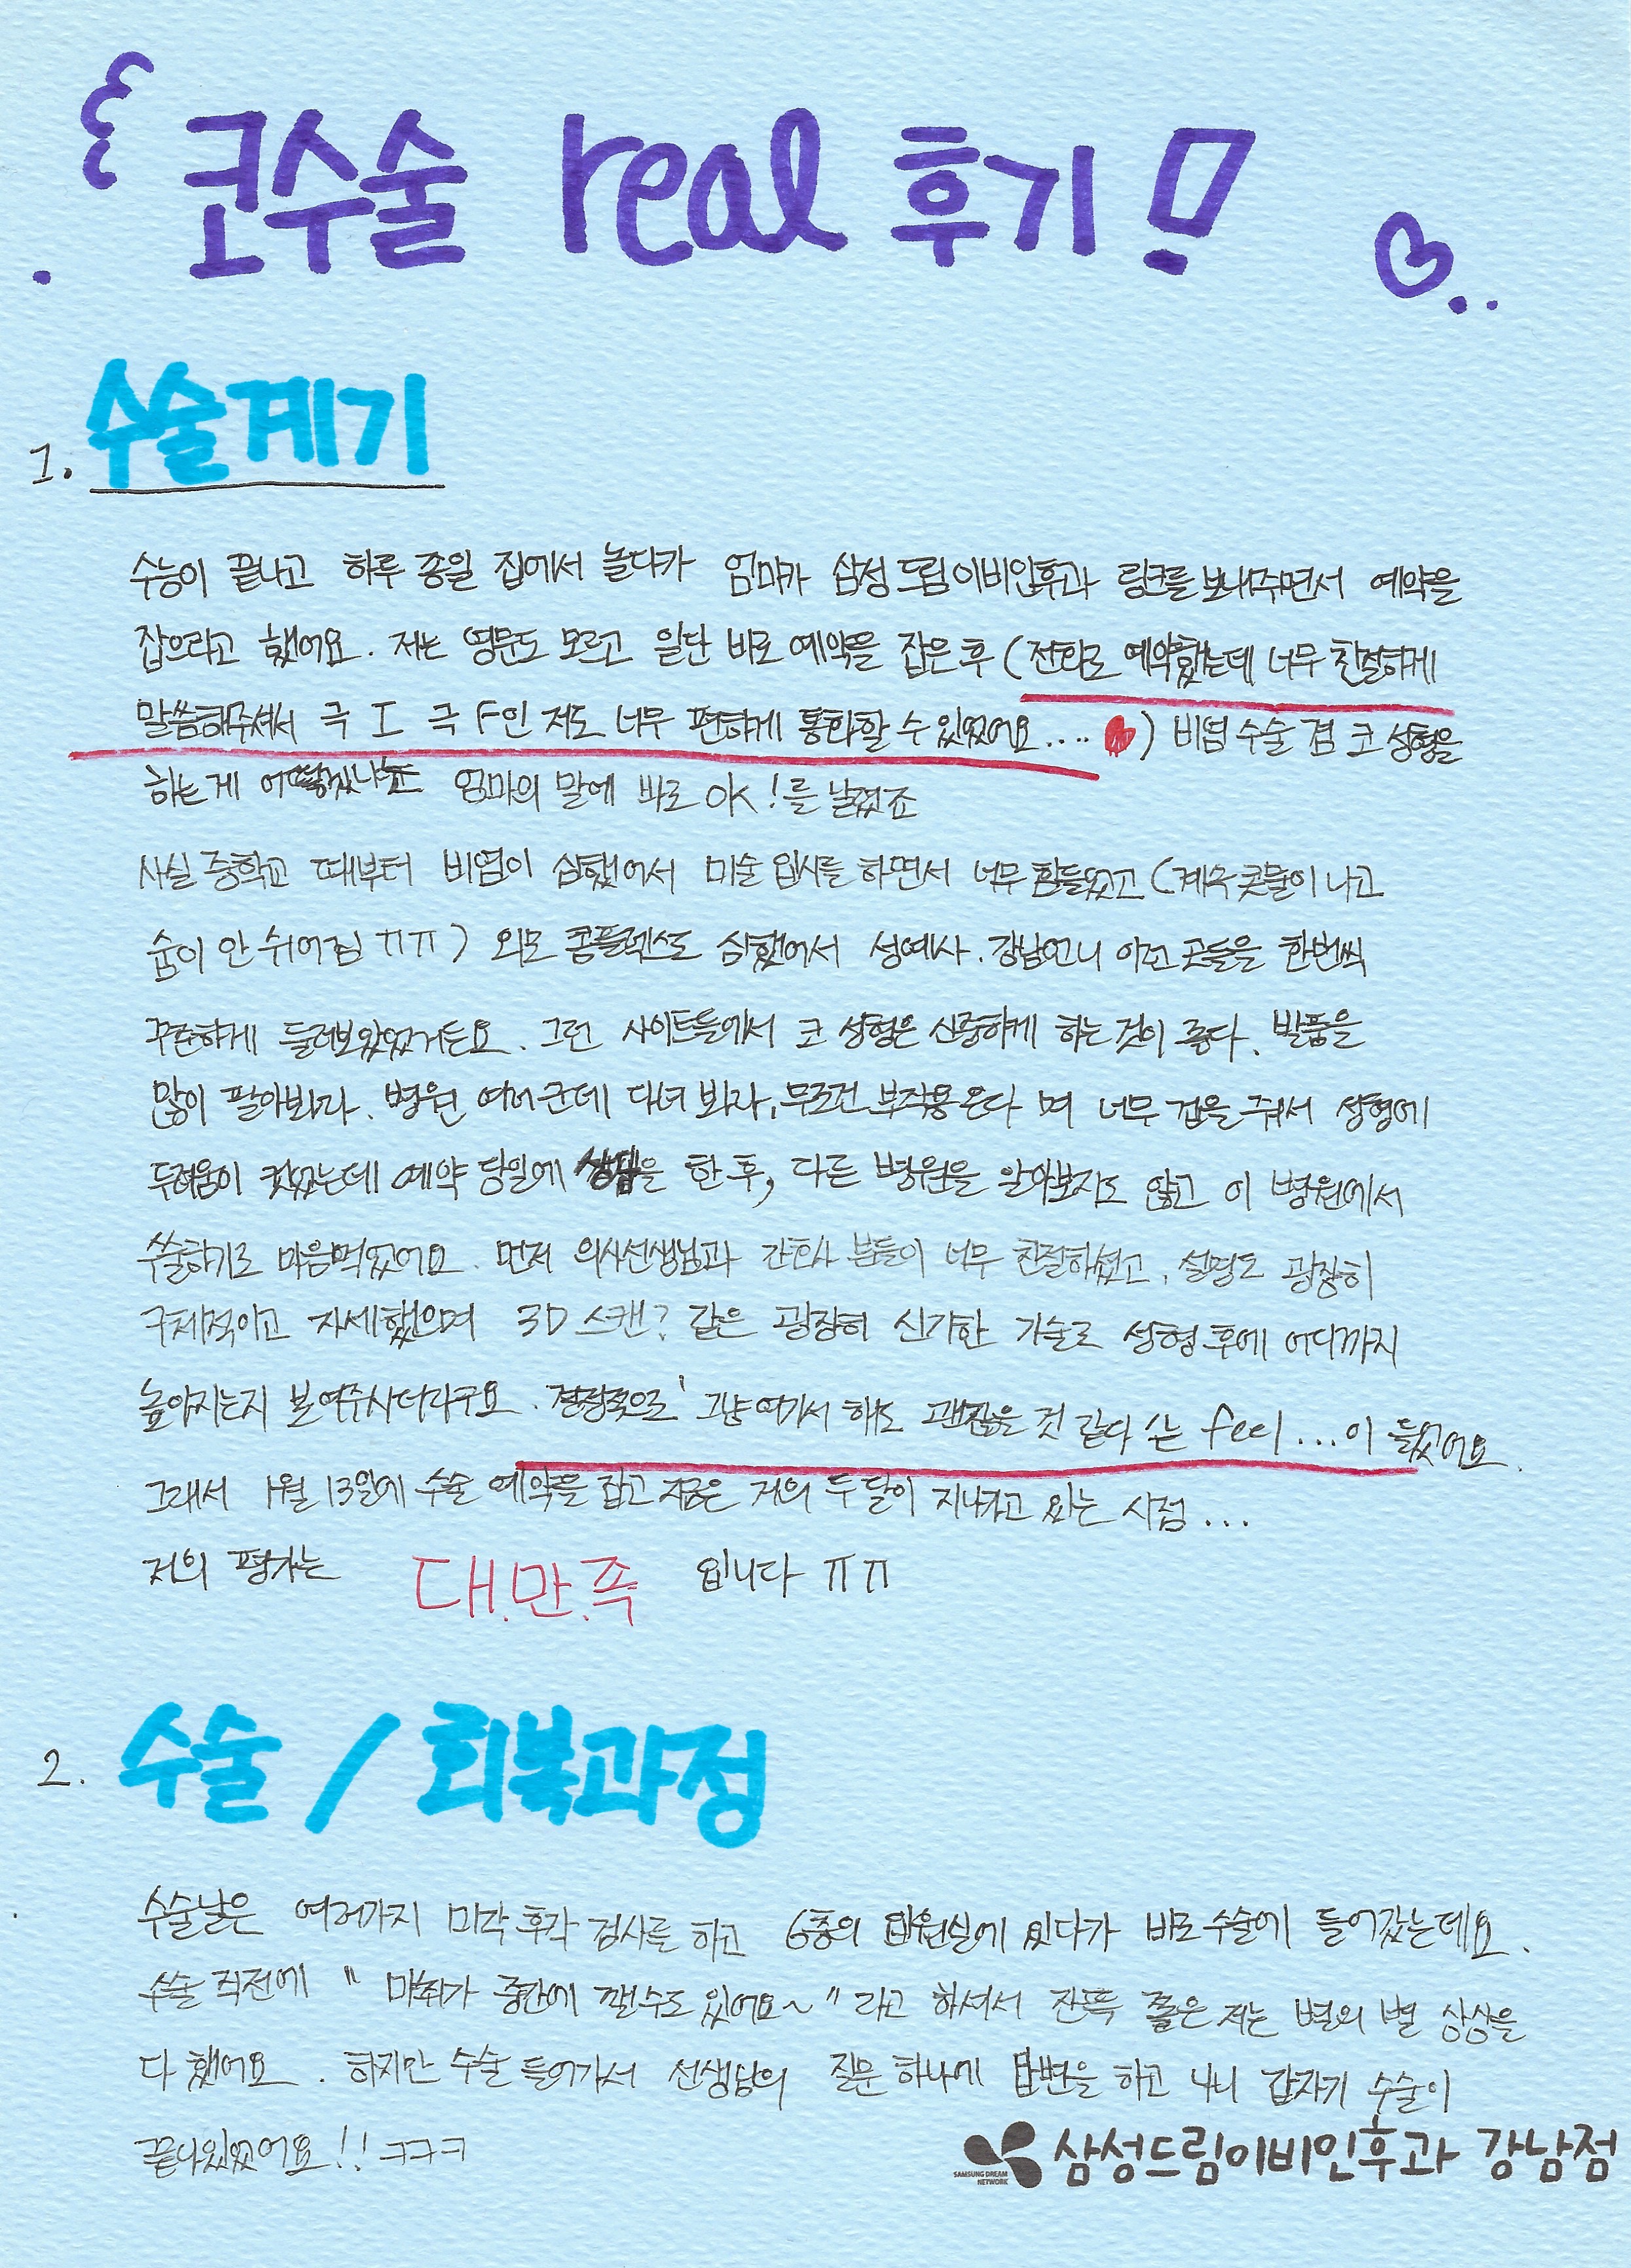 코수술 real 후기!
1. 수술계기
수능이 끝나고 하루 종일 집에서 놀다가 엄마가 삼성드림이비인후과 링크를 보내주면서 예약을
잡으라고 했어요. 저는 영문도 모르고 일단 바로 예약을 잡은 후 (전화로 예약했는데 너무 친절하게
말씀해주셔서 극 I 극 F인 저도 너무 편하게 통화할 수 있었어요....) 비염 수술 겸 코 성형을
하는게 어떻겠냐는 엄마의 말에 바로 OK!를 날렸죠
사실 중학교 때부터 비염이 심했어서 미술 입시를 하면서 너무 힘들었고 (계속 콧물이 나고
숨이 안 쉬어짐 ㅠㅠ) 외모 콤플렉스도 심했어서 성예사. 강남언니 이런 곳들을 한번씩
꾸준하게 들러보았었거든요. 그런 사이트들에서 코 성형은 신중하게 하는 것이 좋다. 발품을
많이 팔아봐라. 병원 여러군데 다녀 봐라, 무조건 부작용 온다 며 너무 겁을 줘서 성형에
두려움이 컸었는데 예약 당일에 상담을 한 후, 다른 병원을 알아보지도 않고 이 병원에서
수술하기로 마음먹었어요. 먼저 의사선생님과 간호사 분들이 너무 친절하셨고, 설명도 굉장히
구체적이고 자세했으며 3D 스캔? 같은 굉장히 신기한 기술로 성형 후에 어디까지
높아지는지 보여주시더라구요. 결정적으로 '그냥 여기서 해도 괜찮을 것 같다' 는 feel...이 들었어요.
그래서 1월 13일에 수술 예약을 잡고 지금은 거의 두 달이 지나가고 있는 시점...
저의 평가는 대.만.족 입니다 ㅠㅠ
2. 수술 / 회복과정
수술날은 여러가지 미각 후각 검사를 하고 6층의 입원실에 있다가 바로 수술에 들어갔는데요.
수술 직전에 "마취가 중간에 깰수도 있어요~" 라고 하셔서 잔뜩 쫄은 저는 별의 별 상상을
다 했어요. 하지만 수술 들어가서 선생님의 질문 하나에 답변을 하고 나니 갑자기 수술이
끝나있었어요!! ㅋㅋㅋ
SAMSUNG DREAM NETWORK 삼성드림이비인후과 강남점